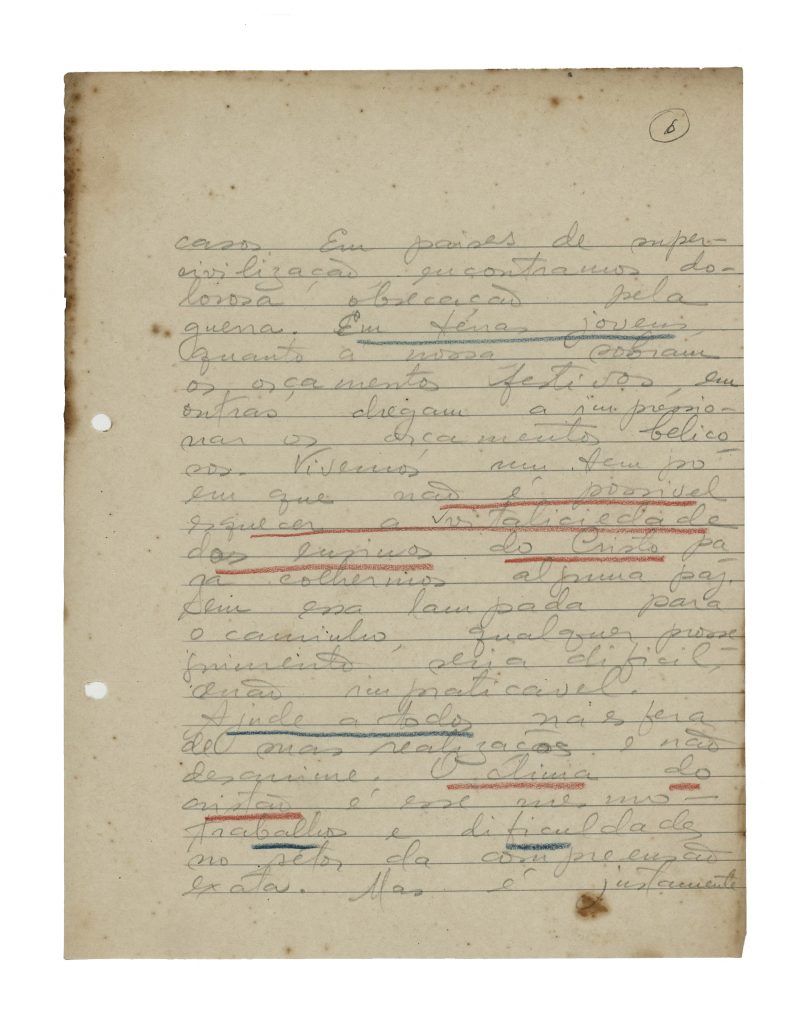 6
casos Em paises de super-
civilização, encontramos do-
lorosa obsecação pela
guerra. Em térras jovens,
quanto a nossa sobram
os orçamentos festivos, em
outras, chegam a impréssio-
nar os orçamentos bélico
sos. Vivemos um tempo
em que não é possivel
esquecer a vitaliciedade
dos ensinos do Cristo pa
ra colhermos alguma paz.
Sem essa lampada para
o caminho, qualquer prosse
guimento seria dificil,
senão impraticavel.
Ajude a todos na esfera
de suas realizações e não
desanime. O clima do
cristão é esse mesmo -
trabalhos e dificuldades
no sétor da compreensão
exata. Mas é justamente